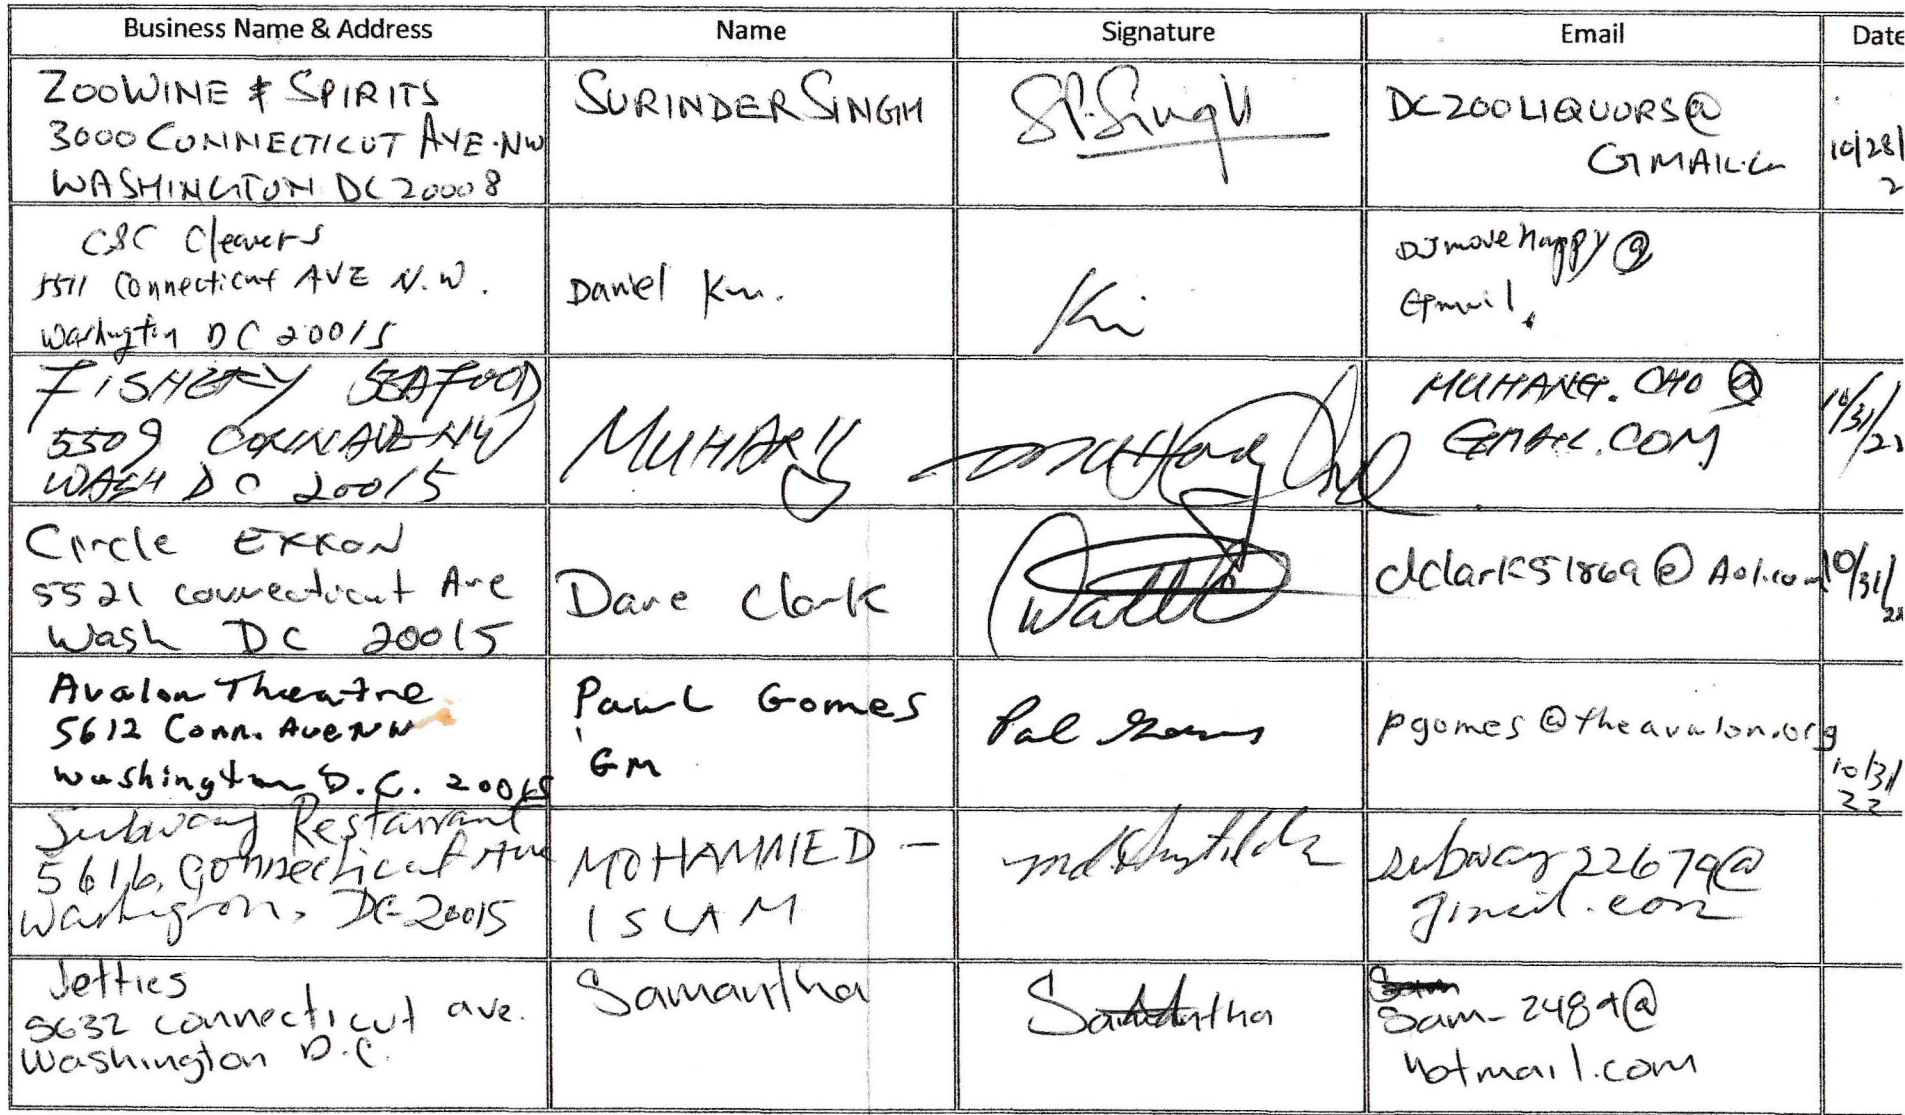 Business Name & Address
Name
Signature
Email
Date
ZOOWINE & SPIRITS
3000 CONNECTICUT AVE. NW
WASHINGTON DC 20008
SURINDER SINGH
SP. Singh
DCZOOLIQUORS@
GMAIL.C
10/28/
2
CSC Cleaners
5511 Connecticut AVE N.W.
Washington DC 20015
Daniel Kim.
Ki
DJmovehappy@
Gmail.
FISHERY SEAFOOD
5509 CONN AVE NW
WASH DC 20015
MUHAN
MUHANG.CHO@
GMAIL.COM
10/31/
22
Circle EXXON
5521 Connecticut Ave
Wash DC 20015
Dave Clark
dclark51869@Aol.com
10/31/
22
Avalon Theatre
5612 Conn. Ave NW
Washington D.C. 20015
Paul Gomes
GM
Pal Gomes
pgomes@theavalon.org
10/31/
22
Subway Restarrant
5616, Connecticut Ave
Washington, DC-20015
MOHAMMED -
ISLAM
subway22679@
gmail.com
Jetties
5632 connecticut ave.
Washington D.C.
Samantha
Samantha
Sam
Sam-2489@
hotmail.com